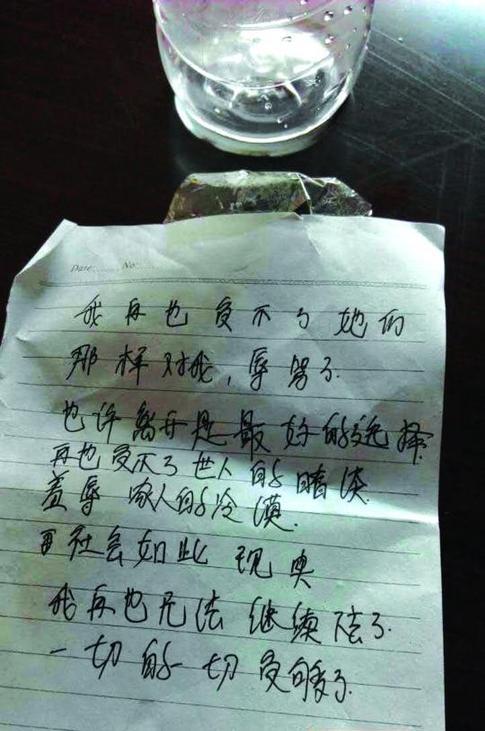 Date: No.
我再也受不了她们
那样对我,辱骂了.
也许离开是最好的选择
再也受不了世人的
羞辱 家人的冷漠.
社会如此现
我再也无法继续陪了.
一切的一切受够了.